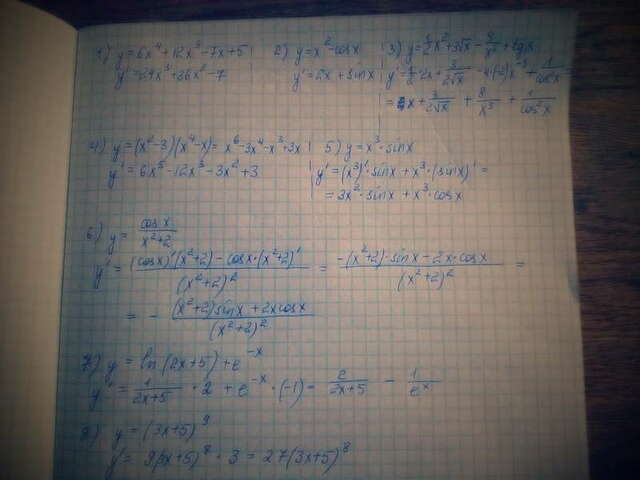 1) y=6x⁴+12x³-7x+5 2) y=x²-cosx 3) y=½x²+3√x-4/x²+tgx
y'=24x³+36x²-7 y'=2x+sinx y'=½·2x+3/(2√x)-4·(-2)x⁻³+1/cos²x=
=x+3/(2√x)+8/x³+1/cos²x
4) y=(x²-3)(x⁴-x)=x⁶-3x⁴-x³+3x 5) y=x³·sinx
y'=6x⁵-12x³-3x²+3 y'=(x³)'·sinx+x³·(sinx)'=
=3x²·sinx+x³·cosx
6) y=cosx/(x²+2)
y'=((cosx)'(x²+2)-cosx·(x²+2)')/(x²+2)²=(-(x²+2)·sinx-2x·cosx)/(x²+2)²=
=-((x²+2)sinx+2xcosx)/(x²+2)²
7) y=ln(2x+5)+e⁻ˣ
y'=1/(2x+5)·2+e⁻ˣ·(-1)=2/(2x+5)-1/eˣ
8) y=(3x+5)⁹
y'=9(3x+5)⁸·3=27(3x+5)⁸